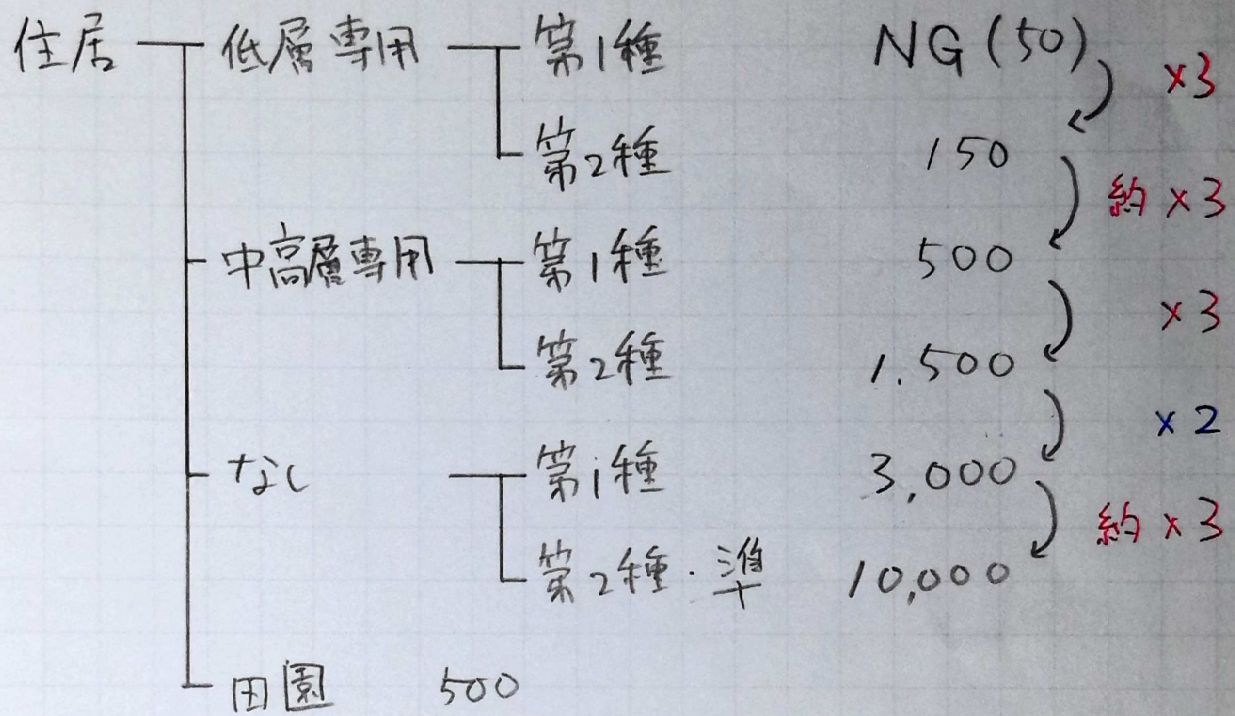 住居 低層専用 第1種 NG(50)
×3
第2種 150
約×3
中高層専用 第1種 500
×3
第2種 1.500
×2
なし 第1種 3,000
約×3
第2種・準 10,000
田園 500